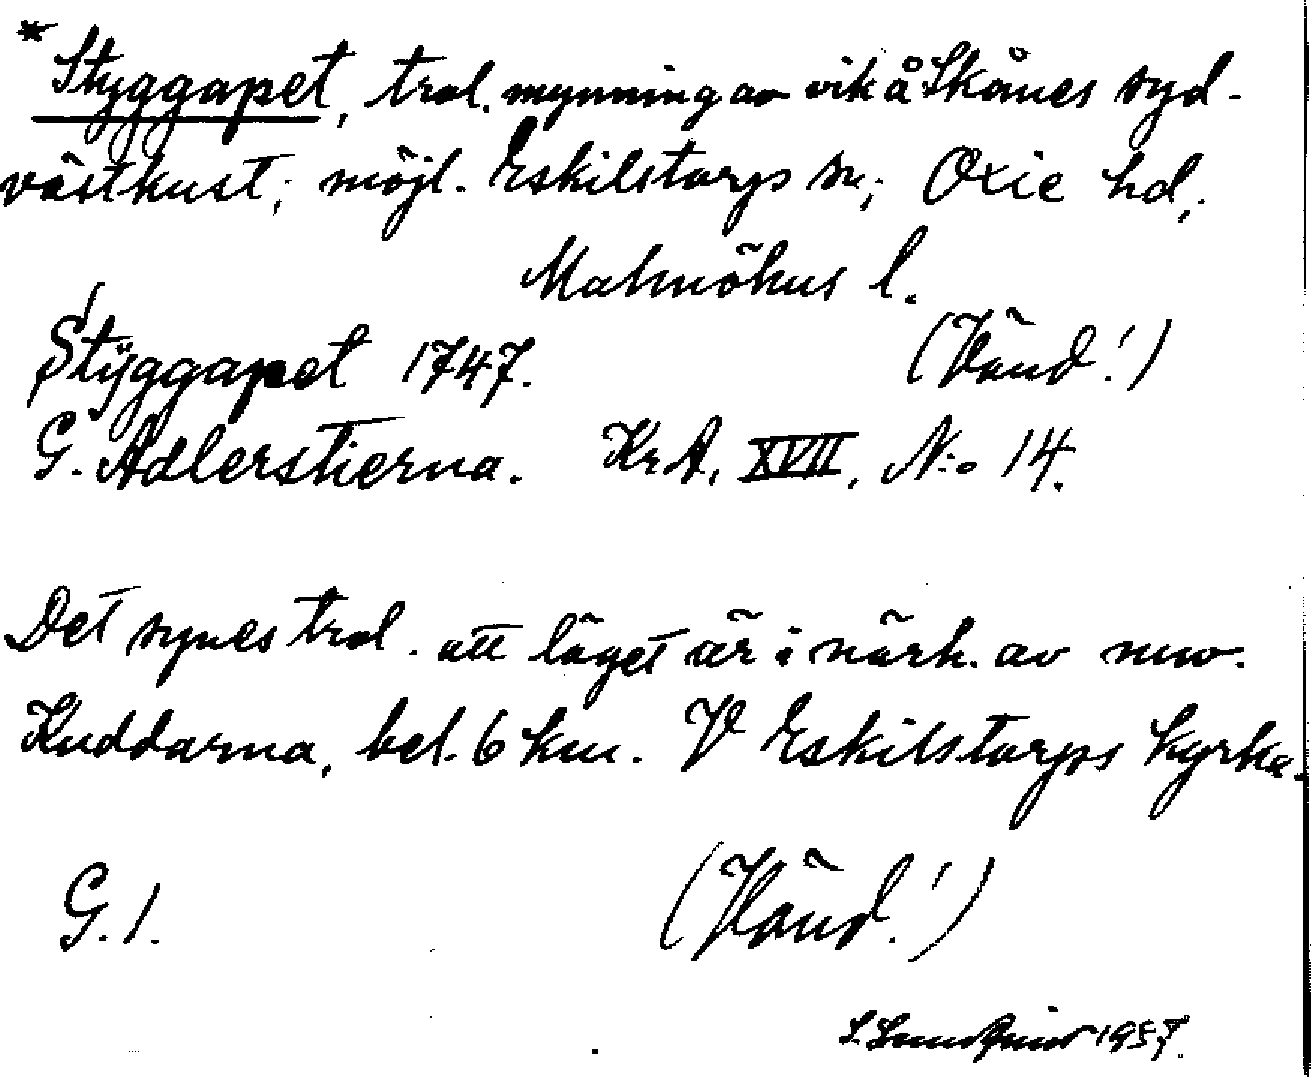 *Styggapet, trol. mynning av vik å Skånes syd-
västkust; möjl. Eskilstorps sn; Oxie hd,
Malmöhus l.
Stÿggapet 1747. (Vänd!)
G. Adlerstierna. KrA, XVII, N:o 14.
Det synes trol. att läget är i närh. av nuv.
Kuddarna, bel. 6 km. V Eskilstorps kyrka.
G. 1. (Vänd!)
1957.